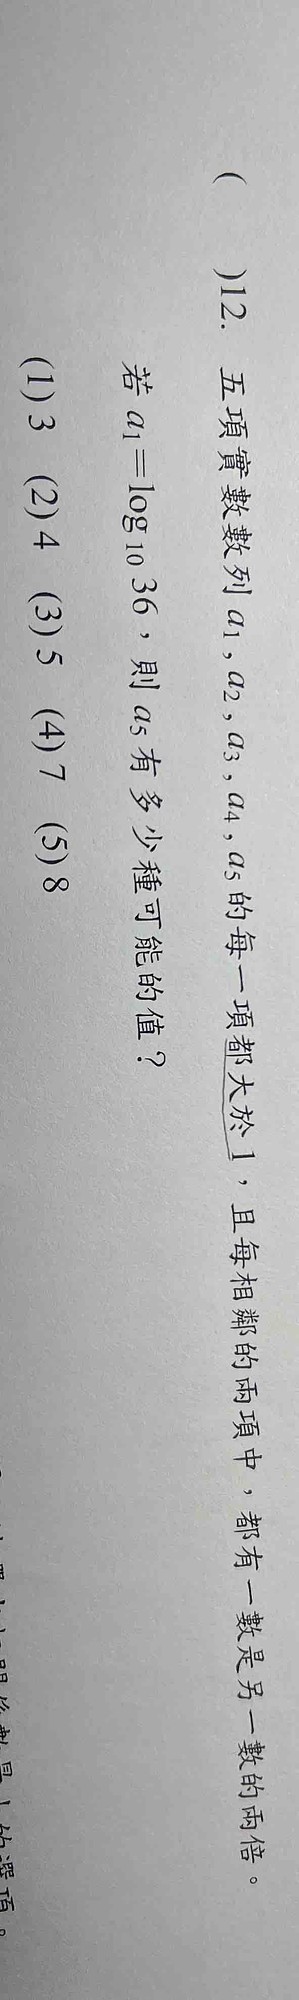 (　)12. 五項實數數列 a₁, a₂, a₃, a₄, a₅ 的每一項都大於1，且每相鄰的兩項中，都有一數是另一數的兩倍。
若 a₁=log₁₀36，則 a₅ 有多少種可能的值？
(1)3 (2)4 (3)5 (4)7 (5)8